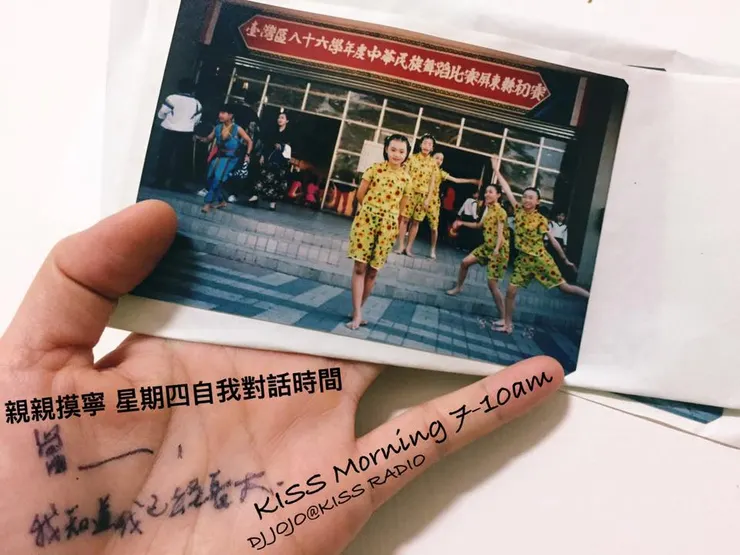 臺灣區八十六學年度中華民族舞蹈比賽屏東縣初賽
親親摸寧 星期四自我對話時間
KISS Morning 7-10am
DJJOJO@KISS RADIO
我知道我已經長大